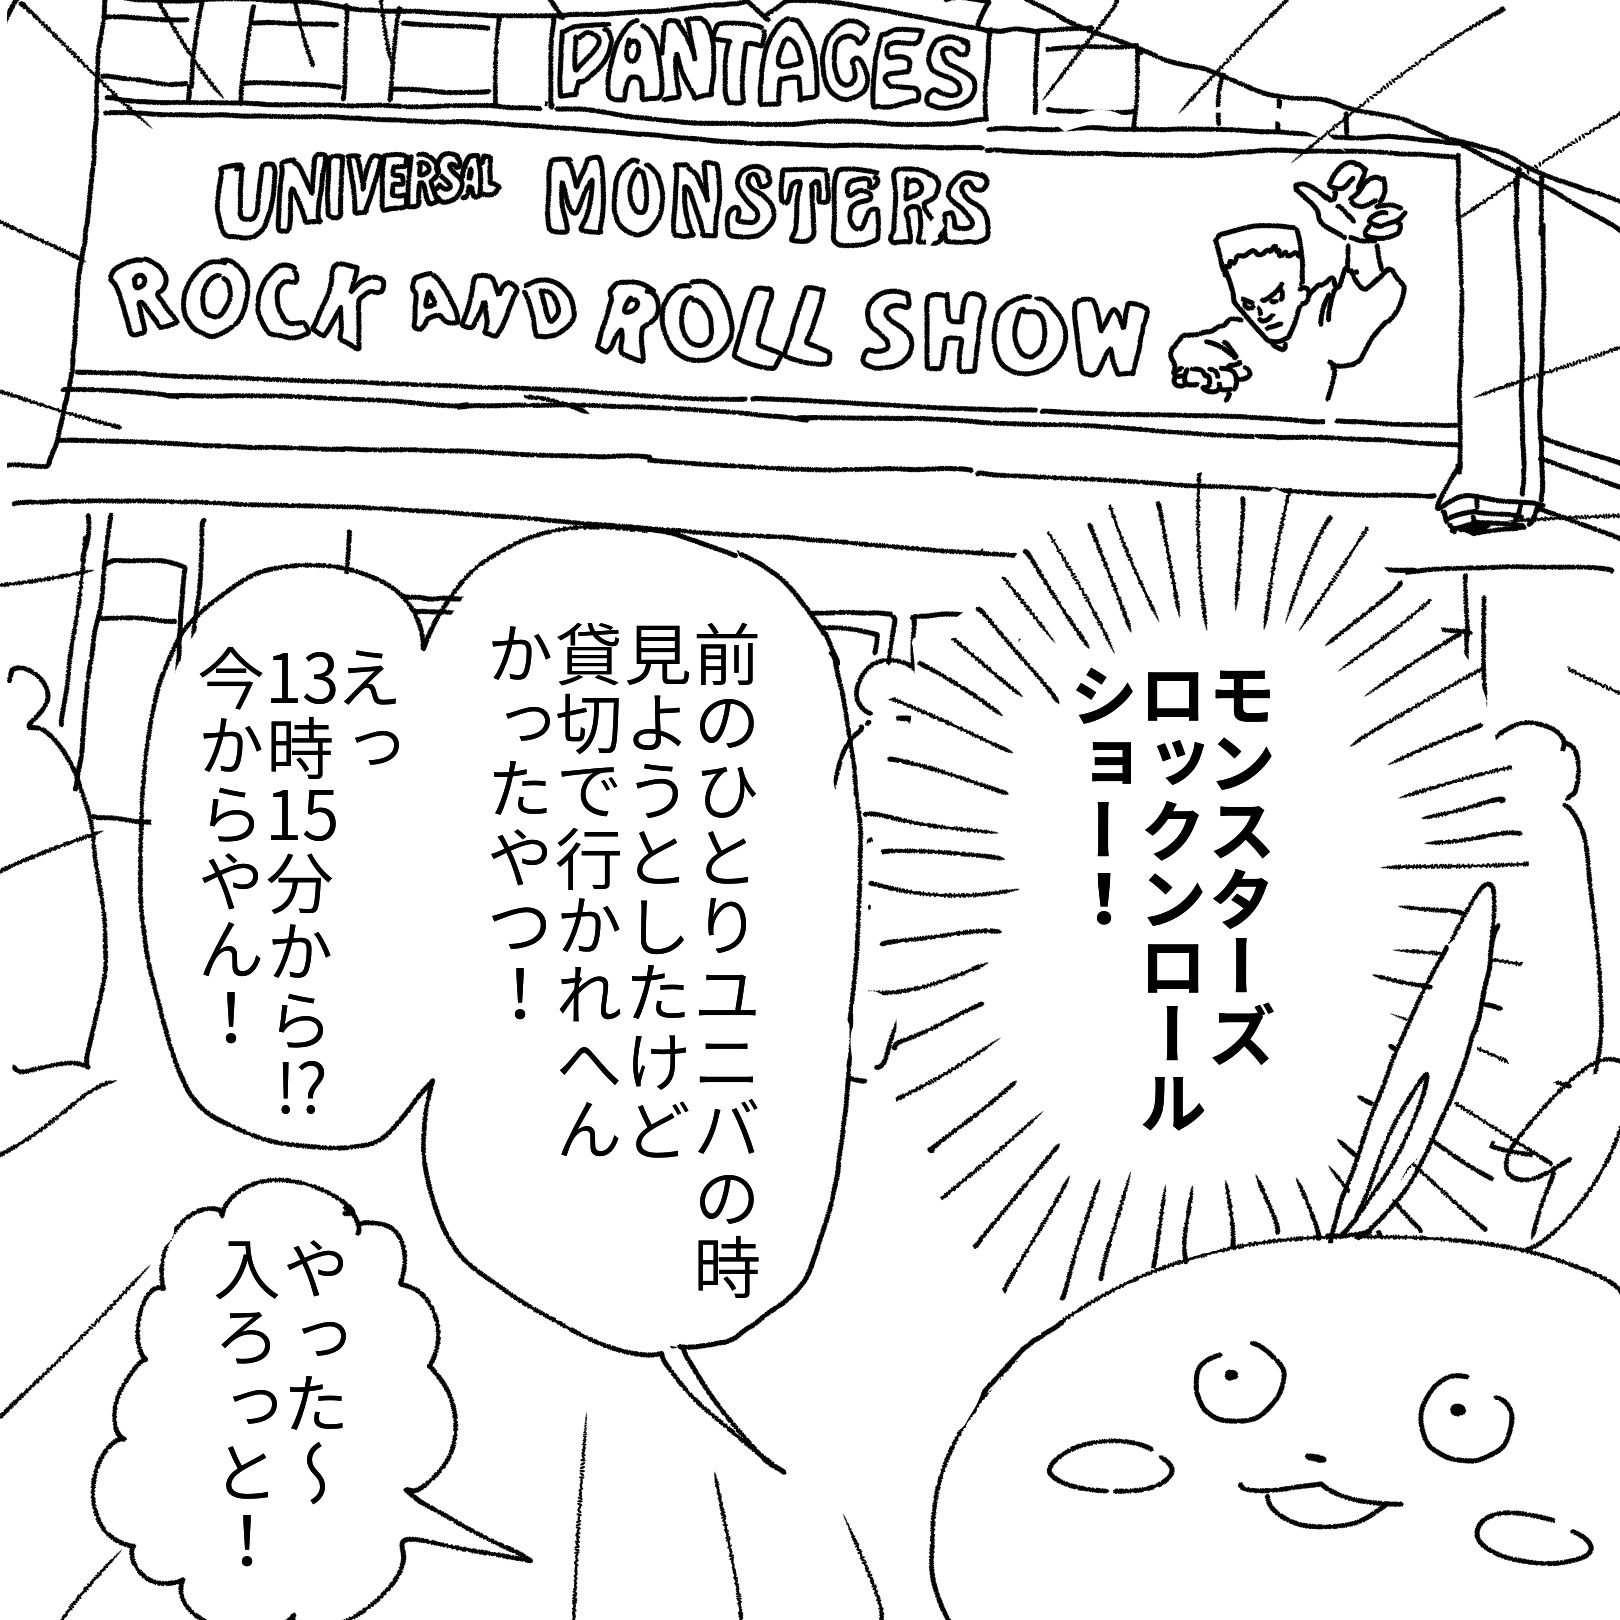 PANTAGES
UNIVERSAL MONSTERS
ROCK AND ROLL SHOW
モンスターズ
ロックンロール
ショー！
前のひとりユニバの時
見ようとしたけど
貸切で行かれへん
かったやつ！
えっ
13時15分から!?
今からやん！
やった〜
入ろっと！